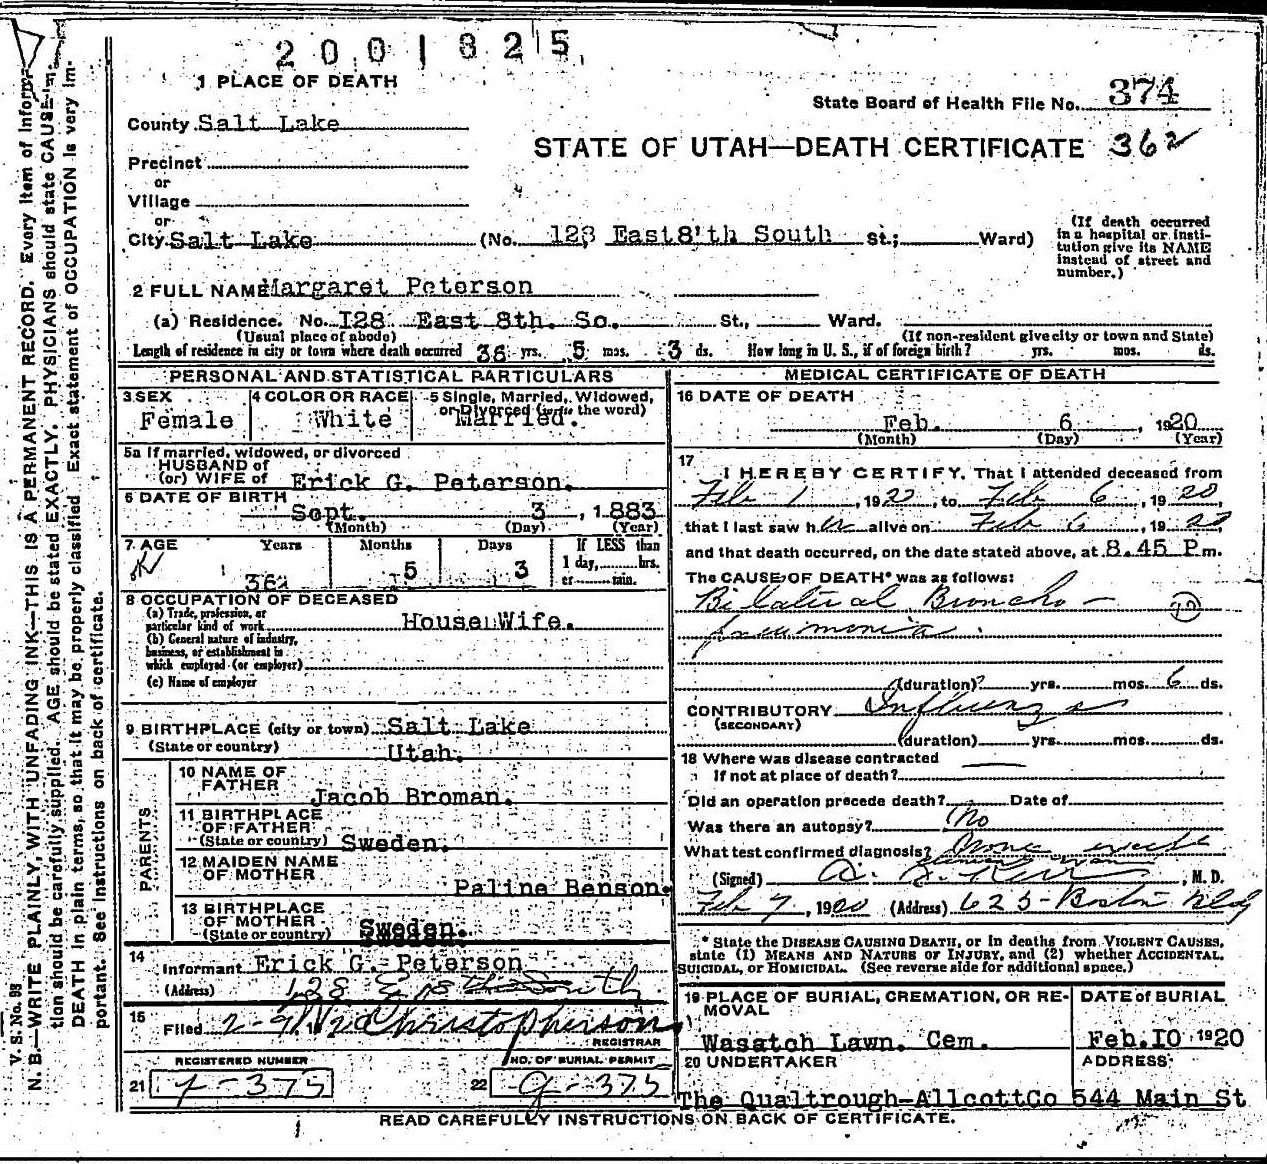 2001825
1 PLACE OF DEATH
State Board of Health File No. 374
County Salt Lake
STATE OF UTAH—DEATH CERTIFICATE 362
Precinct
or
Village
or
City Salt Lake (No. 128 East 8'th South St.; Ward)
(If death occurred
in a hospital or insti-
tution give its NAME
instead of street and
number.)
2 FULL NAME Margaret Peterson
(a) Residence. No. I28 East 8th. So. St., Ward.
(Usual place of abode) (If non-resident give city or town and State)
Length of residence in city or town where death occurred 36 yrs. 5 mos. 3 ds. How long in U. S., if of foreign birth? yrs. mos. ds.
PERSONAL AND STATISTICAL PARTICULARS
3 SEX 4 COLOR OR RACE 5 Single, Married, Widowed,
or Divorced (write the word)
Female White Married.
5a If married, widowed, or divorced
HUSBAND of
(or) WIFE of Erick G. Peterson.
6 DATE OF BIRTH
Sept. 3, 1883
(Month) (Day) (Year)
7 AGE Years Months Days If LESS than
1 day, hrs.
or min.
36 5 3
8 OCCUPATION OF DECEASED
(a) Trade, profession, or
particular kind of work House Wife.
(b) General nature of industry,
business, or establishment in
which employed (or employer)
(c) Name of employer
9 BIRTHPLACE (city or town) Salt Lake
(State or country) Utah.
PARENTS
10 NAME OF
FATHER
Jacob Broman.
11 BIRTHPLACE
OF FATHER
(State or country) Sweden.
12 MAIDEN NAME
OF MOTHER
Paline Benson.
13 BIRTHPLACE
OF MOTHER
(State or country) Sweden.
14 Informant Erick G. Peterson
(Address) 128 E 8th South
15 Filed 2-9 Christopherson
REGISTRAR
REGISTERED NUMBER NO. OF BURIAL PERMIT
21 375 22 375
MEDICAL CERTIFICATE OF DEATH
16 DATE OF DEATH
Feb. 6, 1920
(Month) (Day) (Year)
17 I HEREBY CERTIFY, That I attended deceased from
Feb 1, 1920, to Feb 6, 1920,
that I last saw her alive on Feb 6, 1920,
and that death occurred, on the date stated above, at 8.45 P m.
The CAUSE OF DEATH* was as follows:
Bilateral Broncho-
pneumonia.
(duration) yrs. mos. 6 ds.
CONTRIBUTORY Influenza
(SECONDARY)
(duration) yrs. mos. ds.
18 Where was disease contracted
If not at place of death?
Did an operation precede death? Date of
Was there an autopsy? No
What test confirmed diagnosis? None
(Signed) M. D.
Feb 7, 1920 (Address) 625 Boston Bldg
* State the DISEASE CAUSING DEATH, or in deaths from VIOLENT CAUSES,
state (1) MEANS AND NATURE OF INJURY, and (2) whether ACCIDENTAL,
SUICIDAL, or HOMICIDAL. (See reverse side for additional space.)
19 PLACE OF BURIAL, CREMATION, OR RE-
MOVAL
DATE of BURIAL
Wasatch Lawn. Cem. Feb. IO 1920
20 UNDERTAKER ADDRESS
The Qualtrough-AllcottCo 544 Main St
READ CAREFULLY INSTRUCTIONS ON BACK OF CERTIFICATE.
V. S. No. 98
N. B.—WRITE PLAINLY, WITH UNFADING INK—THIS IS A PERMANENT RECORD. Every item of informa-
tion should be carefully supplied. AGE should be stated EXACTLY. PHYSICIANS should state CAUSE OF
DEATH in plain terms, so that it may be properly classified. Exact statement of OCCUPATION is very im-
portant. See instructions on back of certificate.